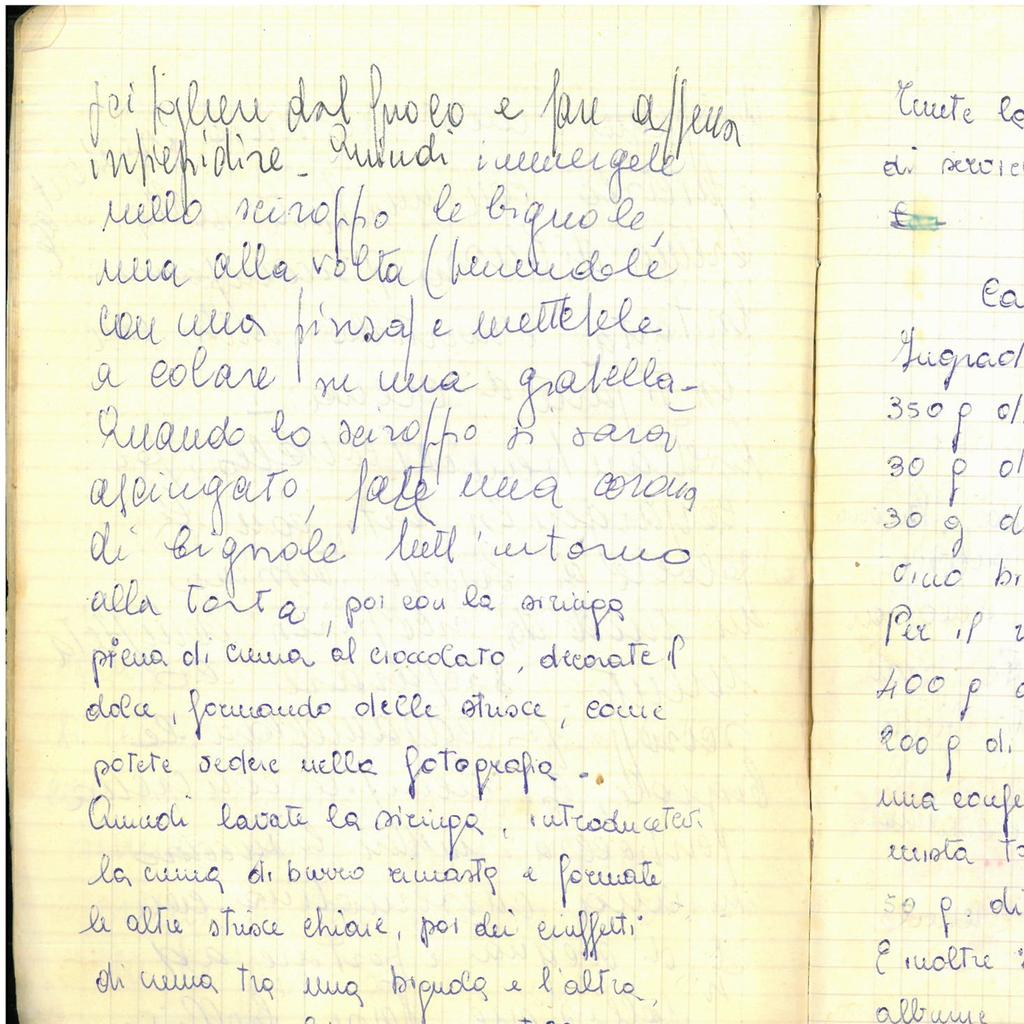 poi togliere dal fuoco e fare appena
intiepidire. Quindi immergete
nello sciroppo le bignole,
una alla volta (tenendole
con una pinza) e mettetele
a colare su una gratella.
Quando lo sciroppo si sarà
asciugato, fate una corona
di bignole tutt'intorno
alla torta, poi con la siringa
piena di crema al cioccolato, decorate il
dolce, formando delle strisce, come
potete vedere nella fotografia.
Quindi lavate la siringa, introducetevi
la crema di burro rimasta e formate
le altre strisce chiare, poi dei ciuffetti
di crema tra una bignola e l'altra,
Unite
di
Ingred
350 g di
30 g di
30 g d
vino bi
Per il
400 g
200 g di
una confe
mista
50 g. di
E inoltre
albume